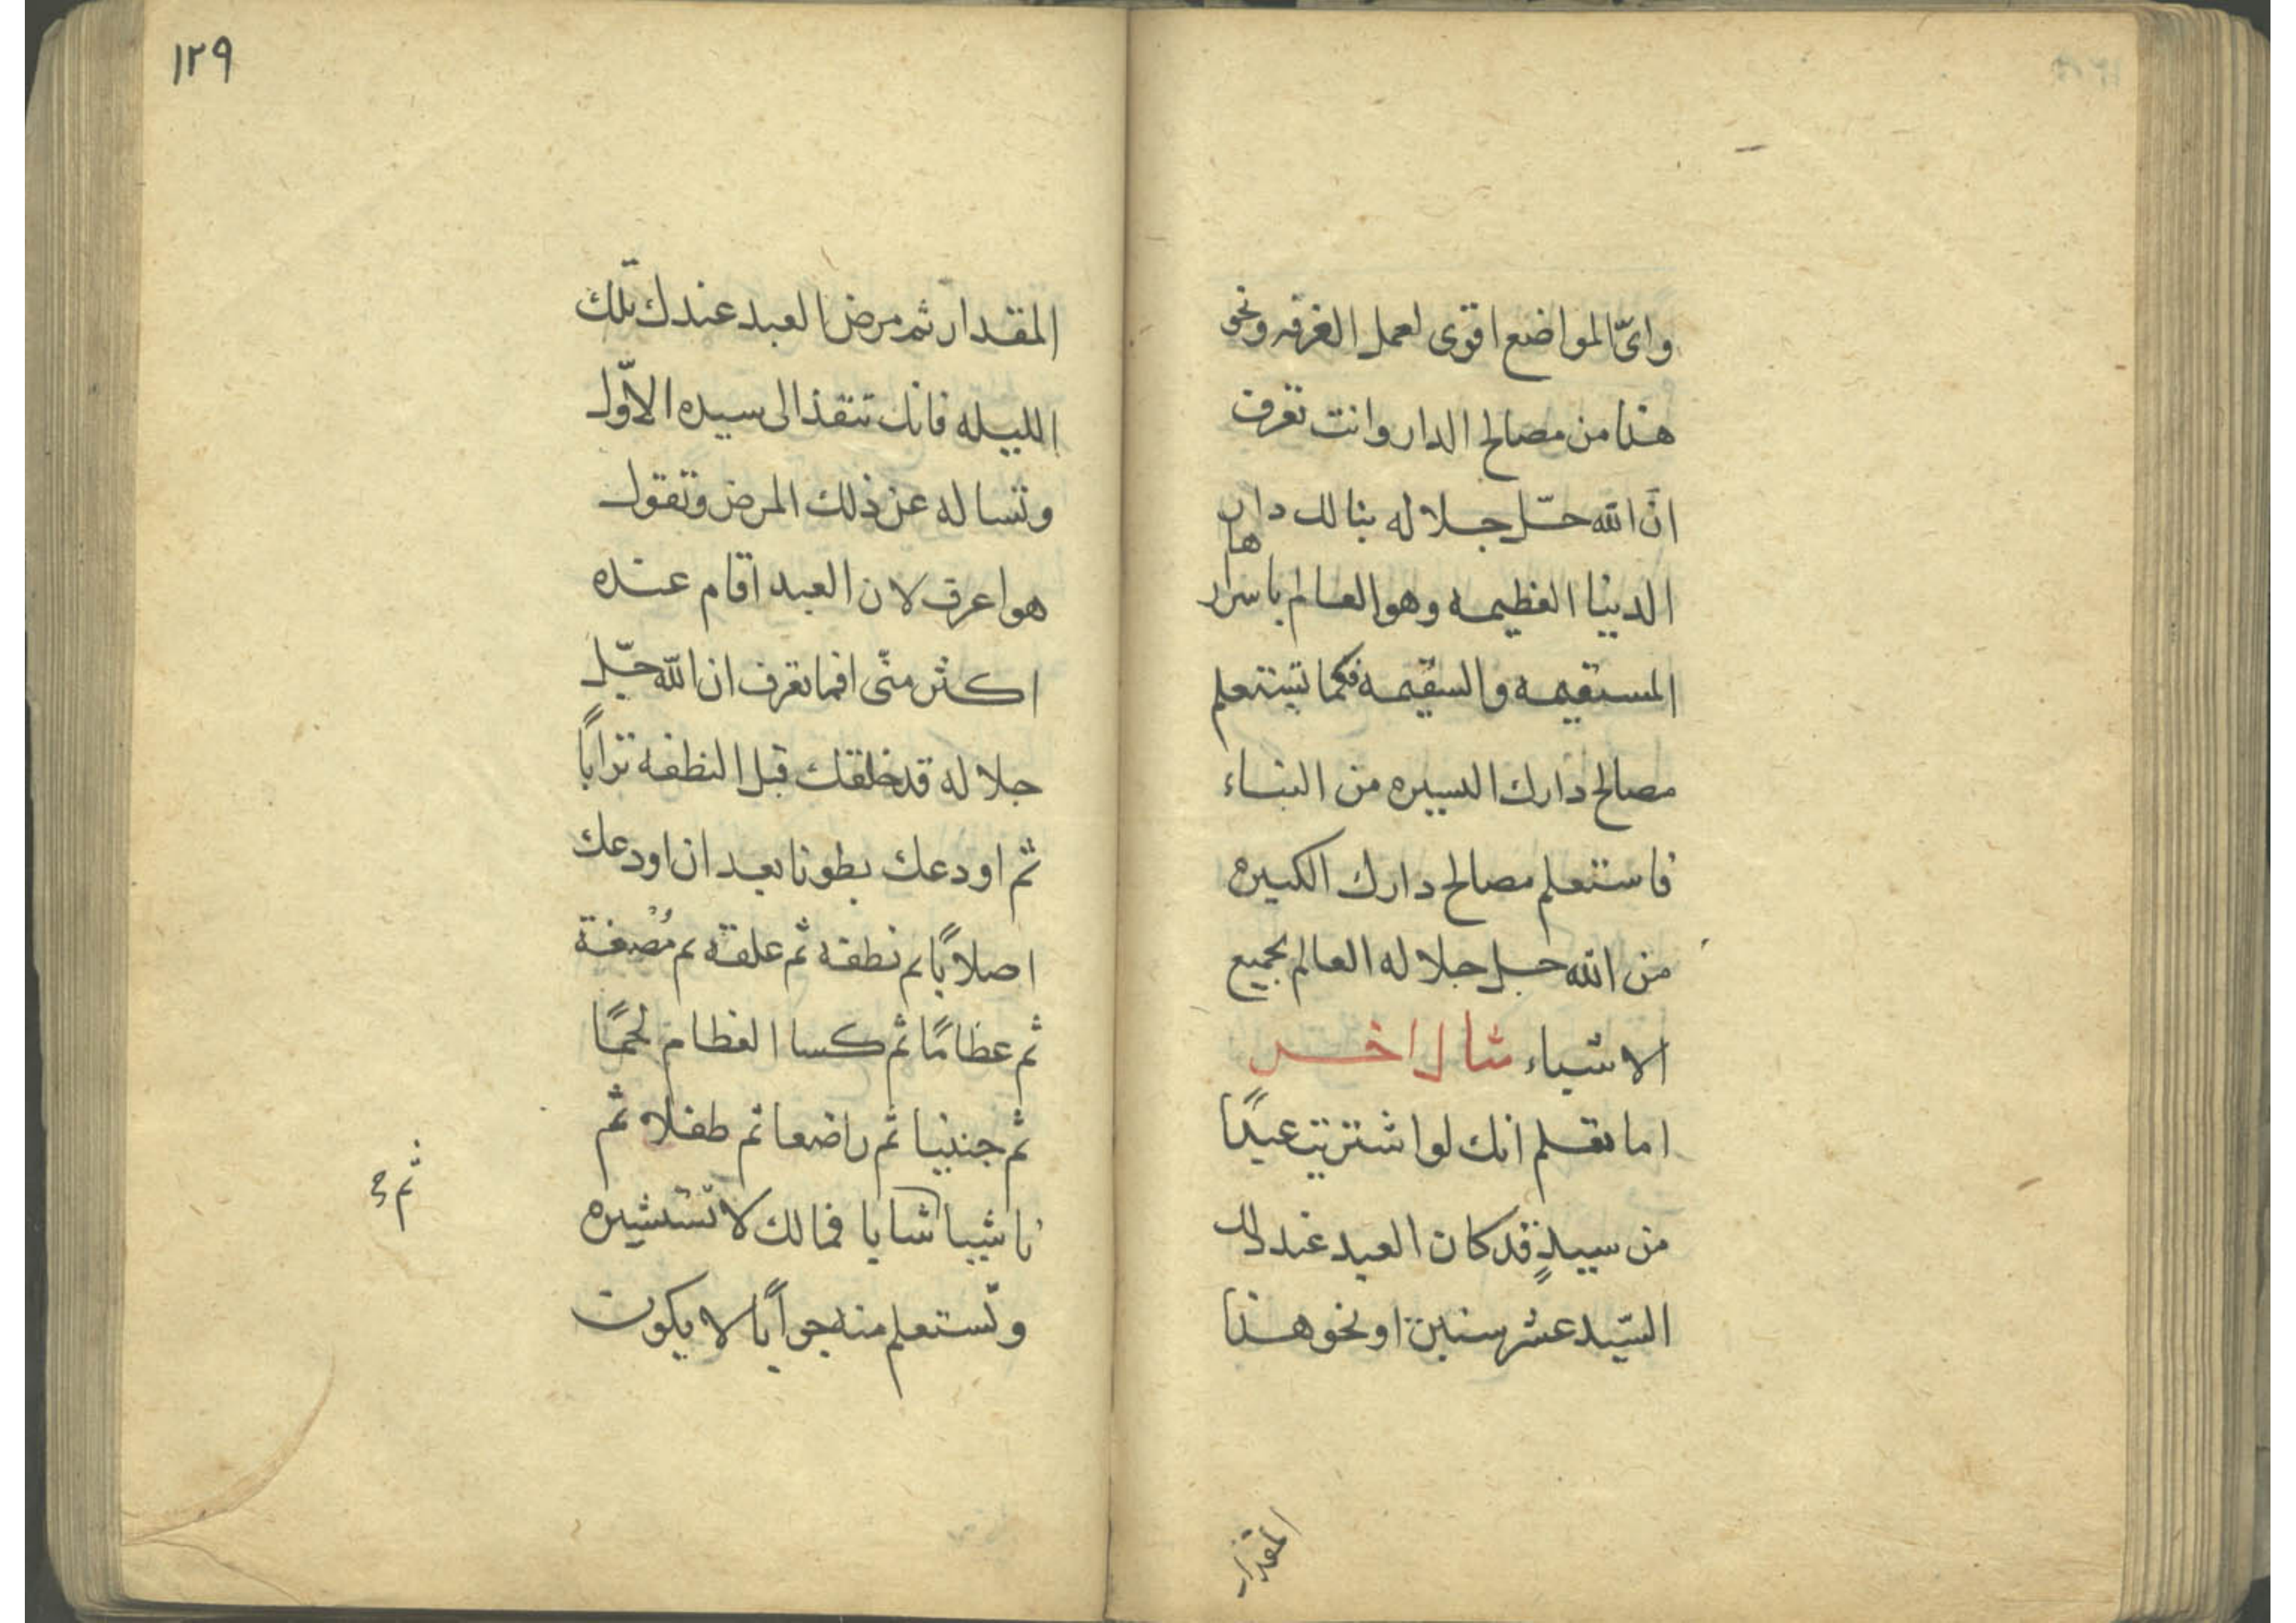 وایّ المواضع اقوى لعمل الغرفه ونحو
هذا من مصالح الدار وانت تعرف
انّ الله جلّ جلاله بنا لك دار
الدنيا العظيمه وهو العالم باسرارها
المستقيمه والسقيمه فكما تستعلم
مصالح دارك اليسيره من البناء
فاستعلم مصالح دارك الكبيره
من الله جل جلاله العالم بجميع
الاشياء مثال اخر
اما تعلم انك لو اشتريت عبدًا
من سيدٍ قد كان العبد عند ذلك
السّيد عشر سنين او نحو هذا
المقدار
١٢٩
المقدار ثم مرض العبد عندك تلك
الليله فانك تنفذ الى سيده الاوّل
وتساله عن ذلك المرض وتقول
هو اعرف لان العبد اقام عنده
اكثر منّى افما تعرف ان الله جلّ
جلاله قد خلقك قبل النطفه ترابًا
ثم اودعك بطونا بعد ان اودعك
اصلابًا ثم نطفه ثم علقه ثم مُضغة
ثم عظامًا ثم كسا العظام لحمًا
ثم جنينا ثم راضعا ثم طفلا ثم
ناشيا شابا فمالك لا تستشيره
وتستعلم منه جوابًا لا يكون
ثم